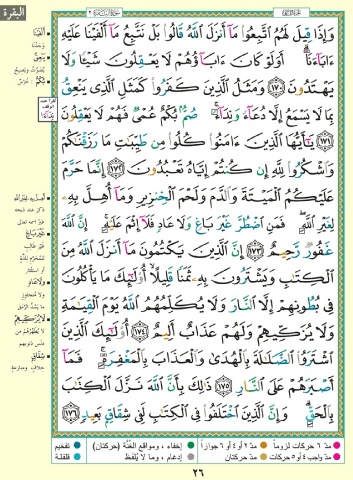 البقرة
وَإِذَا قِيلَ لَهُمُ ٱتَّبِعُوا۟ مَآ أَنزَلَ ٱللَّهُ قَالُوا۟ بَلْ نَتَّبِعُ مَآ أَلْفَيْنَا عَلَيْهِ
ءَابَآءَنَآ أَوَلَوْ كَانَ ءَابَآؤُهُمْ لَا يَعْقِلُونَ شَيْـًٔا وَلَا
يَهْتَدُونَ ١٧٠ وَمَثَلُ ٱلَّذِينَ كَفَرُوا۟ كَمَثَلِ ٱلَّذِى يَنْعِقُ
بِمَا لَا يَسْمَعُ إِلَّا دُعَآءً وَنِدَآءً صُمٌّۢ بُكْمٌ عُمْىٌ فَهُمْ لَا يَعْقِلُونَ
١٧١ يَـٰٓأَيُّهَا ٱلَّذِينَ ءَامَنُوا۟ كُلُوا۟ مِن طَيِّبَـٰتِ مَا رَزَقْنَـٰكُمْ
وَٱشْكُرُوا۟ لِلَّهِ إِن كُنتُمْ إِيَّاهُ تَعْبُدُونَ ١٧٢ إِنَّمَا حَرَّمَ
عَلَيْكُمُ ٱلْمَيْتَةَ وَٱلدَّمَ وَلَحْمَ ٱلْخِنزِيرِ وَمَآ أُهِلَّ بِهِۦ
لِغَيْرِ ٱللَّهِ فَمَنِ ٱضْطُرَّ غَيْرَ بَاغٍ وَلَا عَادٍ فَلَآ إِثْمَ عَلَيْهِ إِنَّ ٱللَّهَ
غَفُورٌ رَّحِيمٌ ١٧٣ إِنَّ ٱلَّذِينَ يَكْتُمُونَ مَآ أَنزَلَ ٱللَّهُ مِنَ
ٱلْكِتَـٰبِ وَيَشْتَرُونَ بِهِۦ ثَمَنًا قَلِيلًا أُو۟لَـٰٓئِكَ مَا يَأْكُلُونَ
فِى بُطُونِهِمْ إِلَّا ٱلنَّارَ وَلَا يُكَلِّمُهُمُ ٱللَّهُ يَوْمَ ٱلْقِيَـٰمَةِ
وَلَا يُزَكِّيهِمْ وَلَهُمْ عَذَابٌ أَلِيمٌ ١٧٤ أُو۟لَـٰٓئِكَ ٱلَّذِينَ
ٱشْتَرَوُا۟ ٱلضَّلَـٰلَةَ بِٱلْهُدَىٰ وَٱلْعَذَابَ بِٱلْمَغْفِرَةِ فَمَآ
أَصْبَرَهُمْ عَلَى ٱلنَّارِ ١٧٥ ذَٰلِكَ بِأَنَّ ٱللَّهَ نَزَّلَ ٱلْكِتَـٰبَ
بِٱلْحَقِّ وَإِنَّ ٱلَّذِينَ ٱخْتَلَفُوا۟ فِى ٱلْكِتَـٰبِ لَفِى شِقَاقٍۭ بَعِيدٍ ١٧٦
أَلْفَيْنَا
وَجَدْنَا
يَنْعِقُ
بُكْمٌ
غَيْرَ بَاغٍ
وَلَا عَادٍ
لَا يُزَكِّيهِمْ
شِقَاقٍ
مدّ ٦ حركات لزوماً
مدّ ٢ أو ٤ أو ٦ جوازاً
إخفاء، ومواقع الغُنَّة (حركتان)
تفخيم
مدّ واجب ٤ أو ٥ حركات
مدّ حركتان
إدغام، وما لا يُلفَظ
قلقلة
٢٦